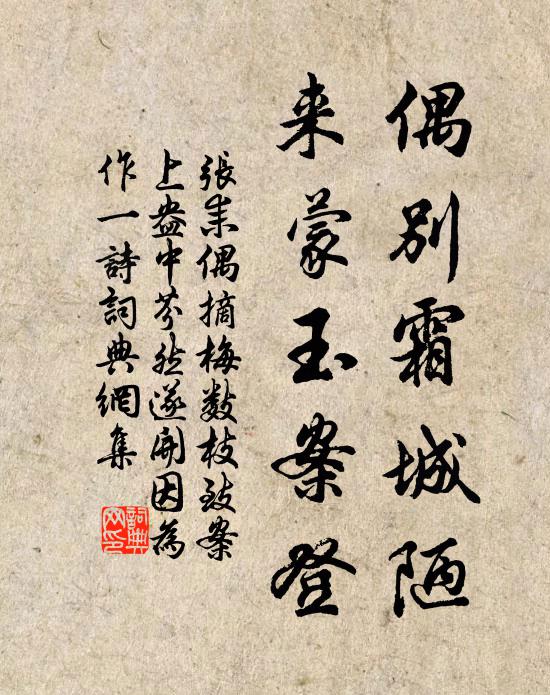 偶别霜城陋
来蒙玉案登
張耒偶摘梅數枝致案
上盎中芬然遂開因為
作一詩詞典網集
詞典网印